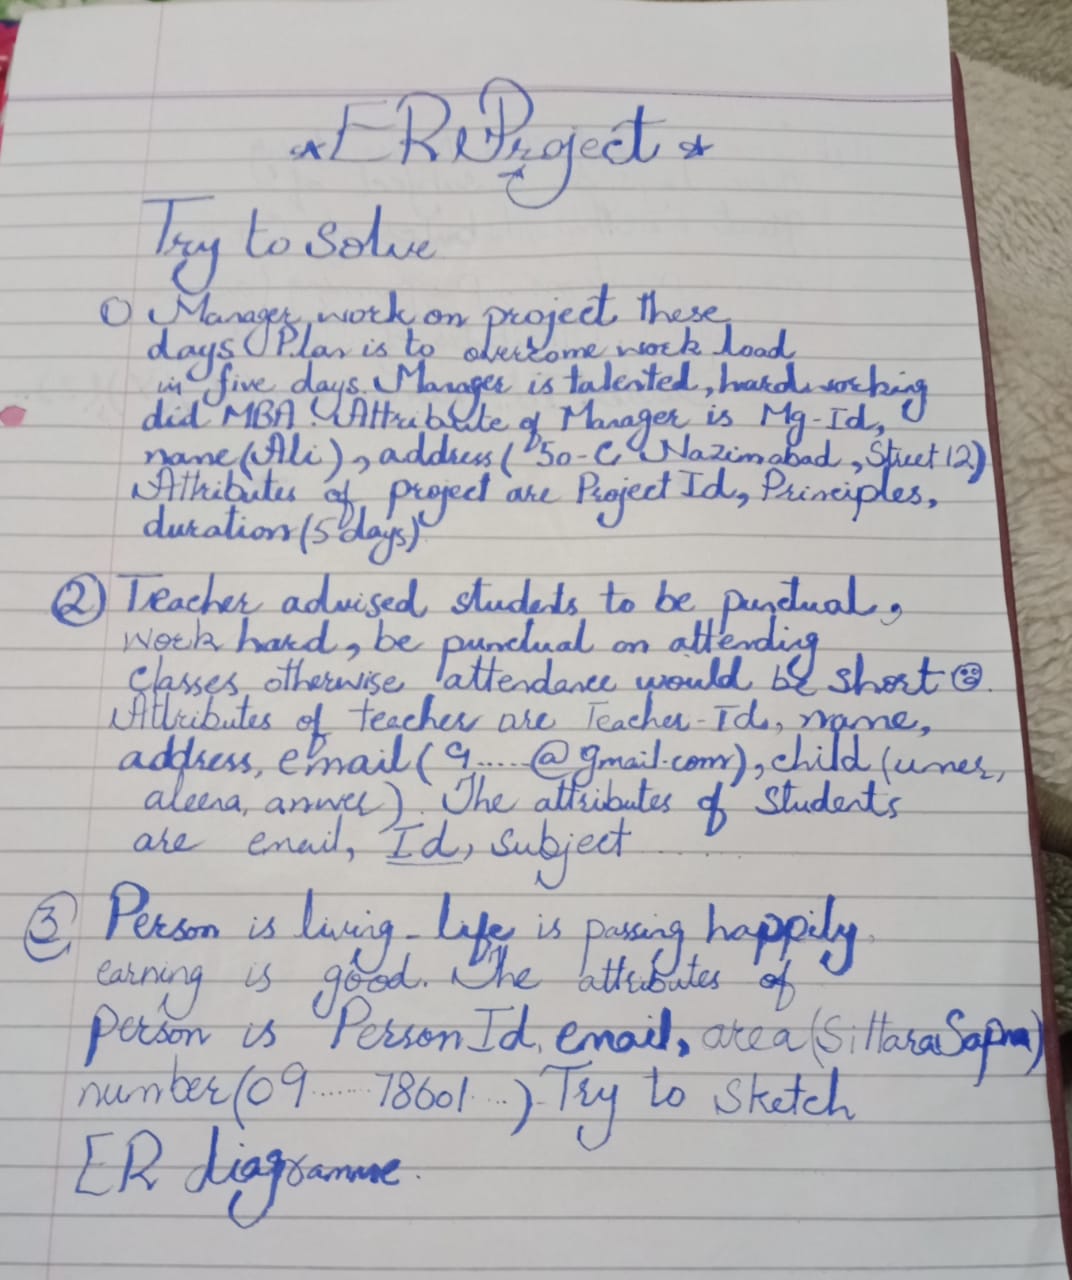 ER Project
Try to solve
① Manager work on project these
days. Plan is to overcome work load
in five days. Manager is talented, hardworking
did MBA. Attribute of Manager is Mg-Id,
name (Ali), address (50-C Nazimabad, Street 12)
Attributes of project are Project Id, Principles,
duration (5 days)
② Teacher advised students to be punctual,
work hard, be punctual on attending
classes otherwise attendance would be short ☹.
Attributes of teacher are Teacher-Id, name,
address, email (9.....@gmail.com), child (umer,
aleena, anwer). The attributes of Students
are email, Id, subject .......
③ Person is living - life is passing happily.
earning is good. The attributes of
person is Person Id, email, area (Sittara Sapna)
number (09......78601...). Try to sketch
ER diagramme.